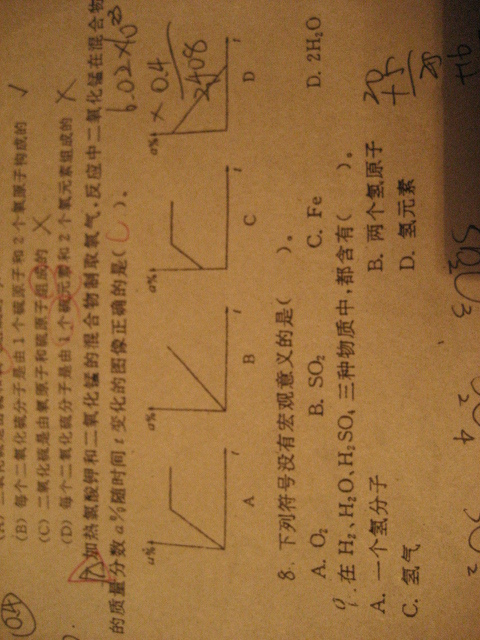 (B) 每个二氧化硫分子是由1个硫原子和2个氧原子构成的 √
(C) 二氧化硫是由氧原子和硫原子组成的 ×
(D) 每个二氧化硫分子是由1个硫元素和2个氧元素组成的 ×
加热氯酸钾和二氧化锰的混合物制取氧气,反应中二氧化锰在混合物
的质量分数a%随时间t变化的图像正确的是( C )。
6.02×10²³
× 0.4
2408
a% a% a% a%
t t t t
A B C D
8. 下列符号没有宏观意义的是( )。
A. O₂ B. SO₂ C. Fe D. 2H₂O
9. 在H₂、H₂O、H₂SO₄三种物质中,都含有( )。
A. 一个氢分子 B. 两个氢原子
C. 氢气 D. 氢元素
0.4